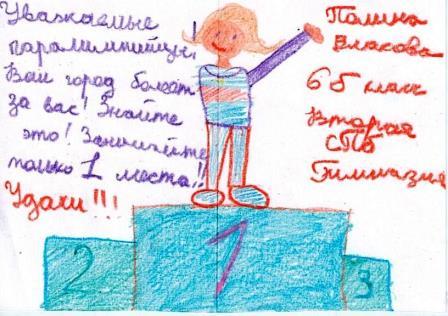 Уважаемые
паралимпийцы!
Ваш город болеет
за вас! Знайте
это! Занимайте
только 1 места!!
Удачи!!!
Полина
Власова
6 б класс
Вторая
СПб
Гимназия
1
2
3